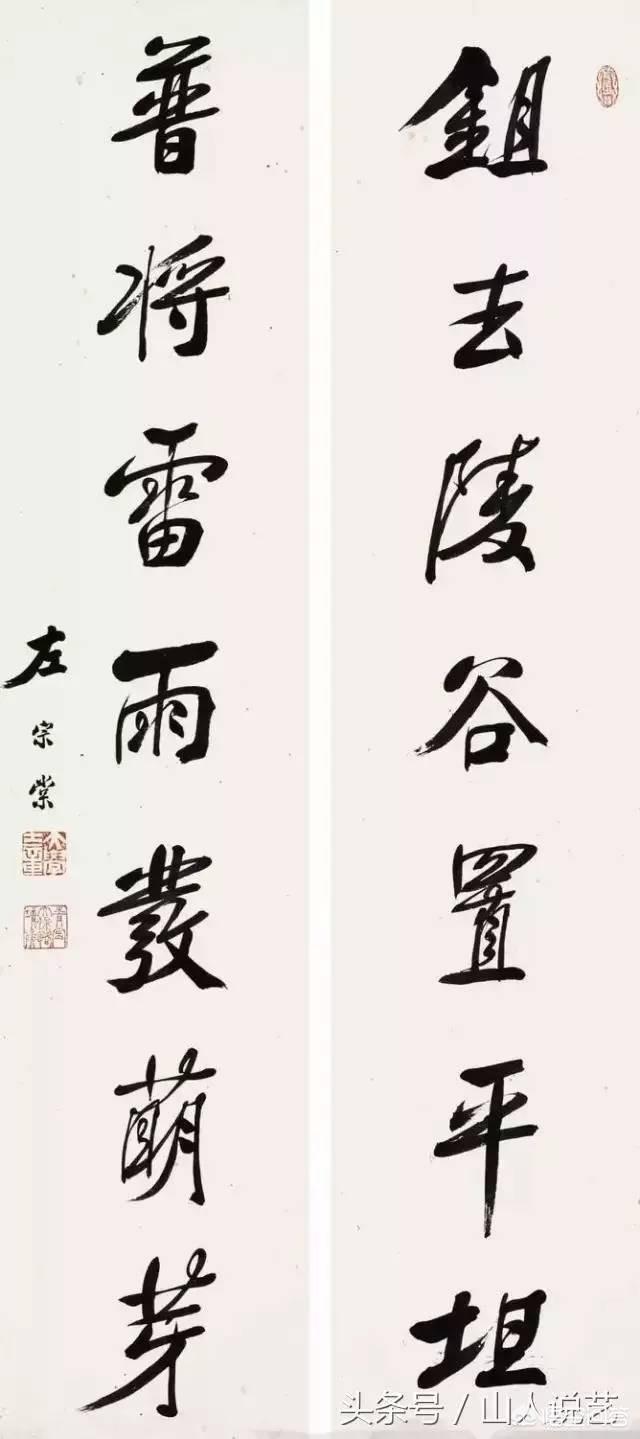 鉏去陵谷置平坦
普将雷雨發萌芽
左宗棠
头条号／山人说艺